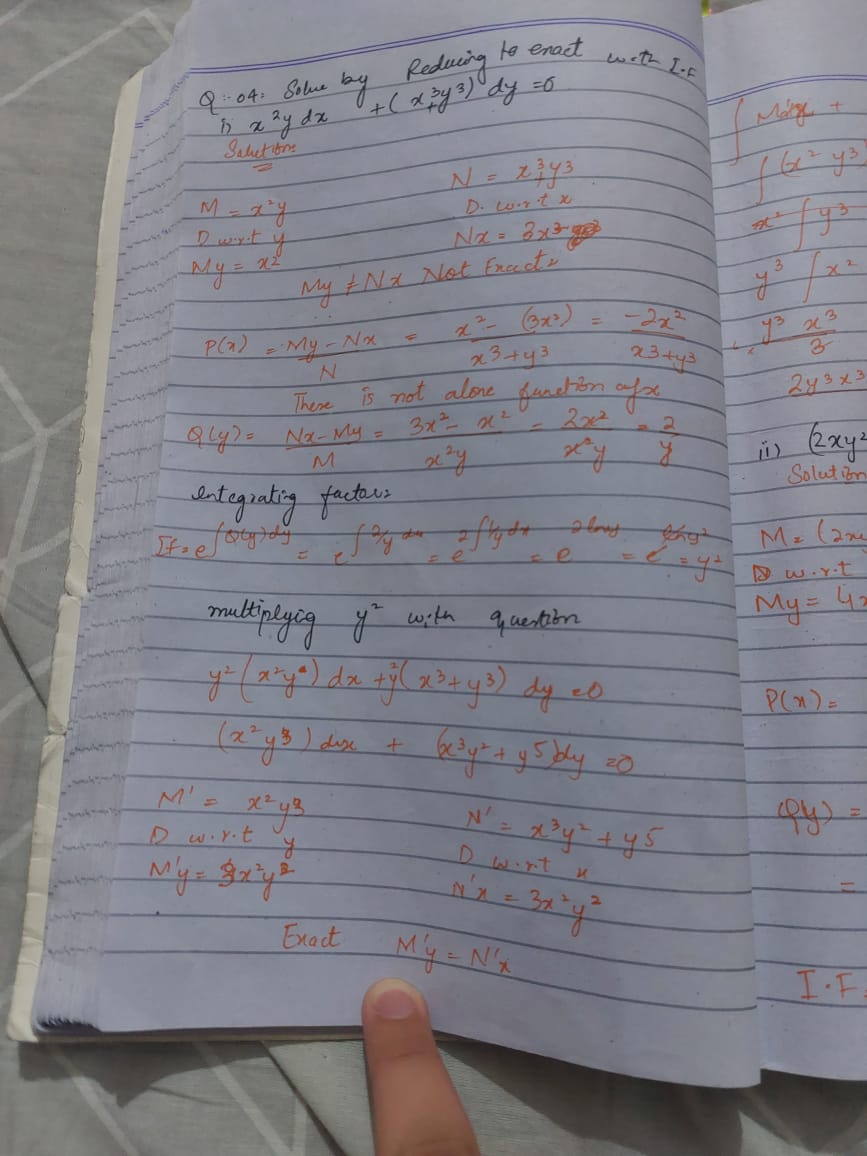 Q:-04: Solve by Reducing to enact with I.F
i) x²y dx + (x³+y³) dy = 0
Solution
M = x²y N = x³+y³
D w.r.t y D. w.r.t x
My = x² Nx = 3x²
My ≠ Nx Not Exact
P(x) = My - Nx / N = x² - (3x²) / x³+y³ = -2x² / x³+y³
There is not alone function of x
Q(y) = Nx - My / M = 3x² - x² / x²y = 2x² / x²y = 2/y
integrating factor:
If = e^∫Q(y)dy = e^∫2/y dx = e^2∫1/y dx = e^2lny = e^lny² = y²
multiplying y² with question
y²(x²y) dx + y²(x³+y³) dy = 0
(x²y³) dx + (x³y² + y5)dy = 0
M' = x²y3 N' = x³y² + y5
D w.r.t y D w.r.t x
M'y = 3x²y² N'x = 3x²y²
Exact M'y = N'x
∫ M'dx +
∫(x² y³
x² ∫ y³
y³ ∫ x²
y³ x³ / 3
2y³x³
ii) (2xy²
Solution
M = (2x
D w.r.t
My = 4x
P(x) =
Q(y) =
=
I.F